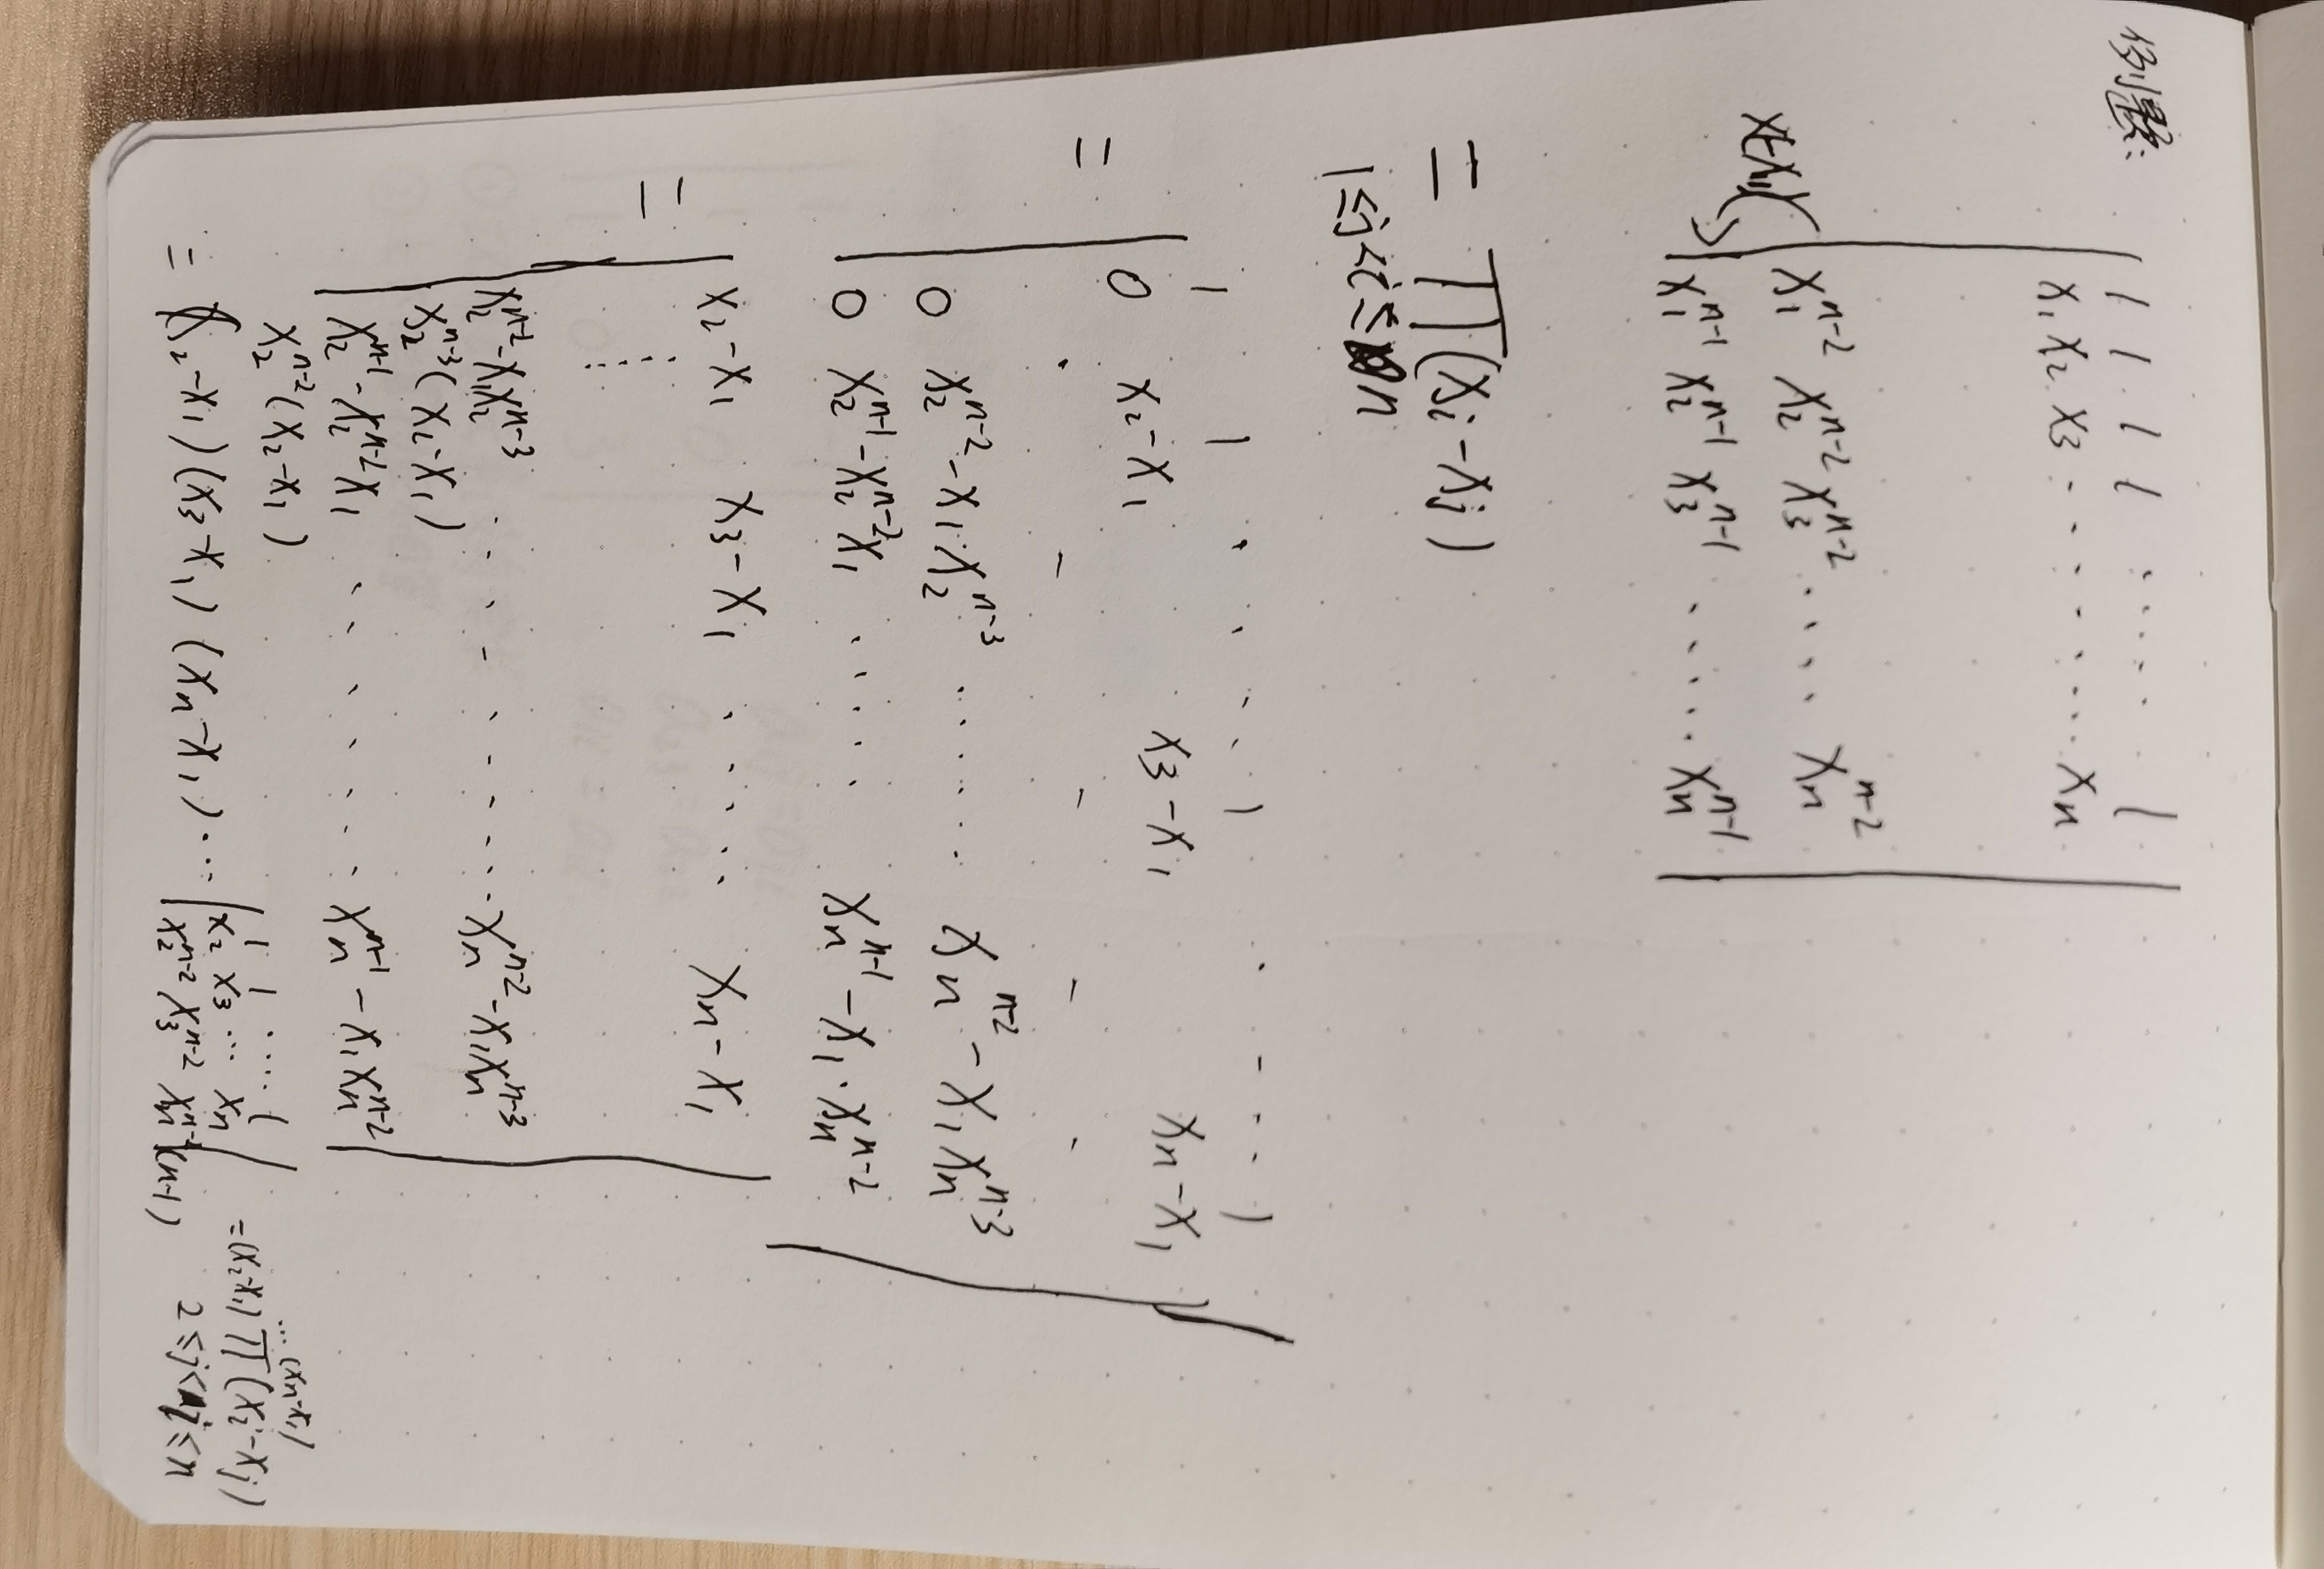 例题:
1 1 1 1 ..... 1
x₁ x₂ x₃ ........ xₙ
x₁ⁿ⁻² x₂ⁿ⁻² x₃ⁿ⁻² .... xₙⁿ⁻²
x₁ⁿ⁻¹ x₂ⁿ⁻¹ x₃ⁿ⁻¹ ..... xₙⁿ⁻¹
= ∏(xᵢ-xⱼ)
1≤j<i≤n
1 1 ..... 1 ..... 1
= 0 x₂-x₁ x₃-x₁ xₙ-x₁
0 x₂ⁿ⁻²-x₁·x₂ⁿ⁻³ ...... xₙⁿ⁻²-x₁xₙⁿ⁻³
0 x₂ⁿ⁻¹-x₂ⁿ⁻²x₁ ..... xₙⁿ⁻¹-x₁·xₙⁿ⁻²
= x₂-x₁ x₃-x₁ ...... xₙ-x₁
x₂ⁿ⁻²-x₁x₂ⁿ⁻³ ........ xₙⁿ⁻²-x₁xₙⁿ⁻³
x₂ⁿ⁻³(x₂-x₁)
x₂ⁿ⁻¹-x₂ⁿ⁻²x₁ ....... xₙⁿ⁻¹-x₁xₙⁿ⁻²
x₂ⁿ⁻²(x₂-x₁)
= (x₂-x₁)(x₃-x₁)(xₙ-x₁).....
1 1 ..... 1
x₂ x₃ ... xₙ
x₂ⁿ⁻² x₃ⁿ⁻² xₙⁿ⁻²
(n-1)
...(xₙ-x₁)
=(x₂-x₁)∏(xᵢ-xⱼ)
2≤j<i≤n